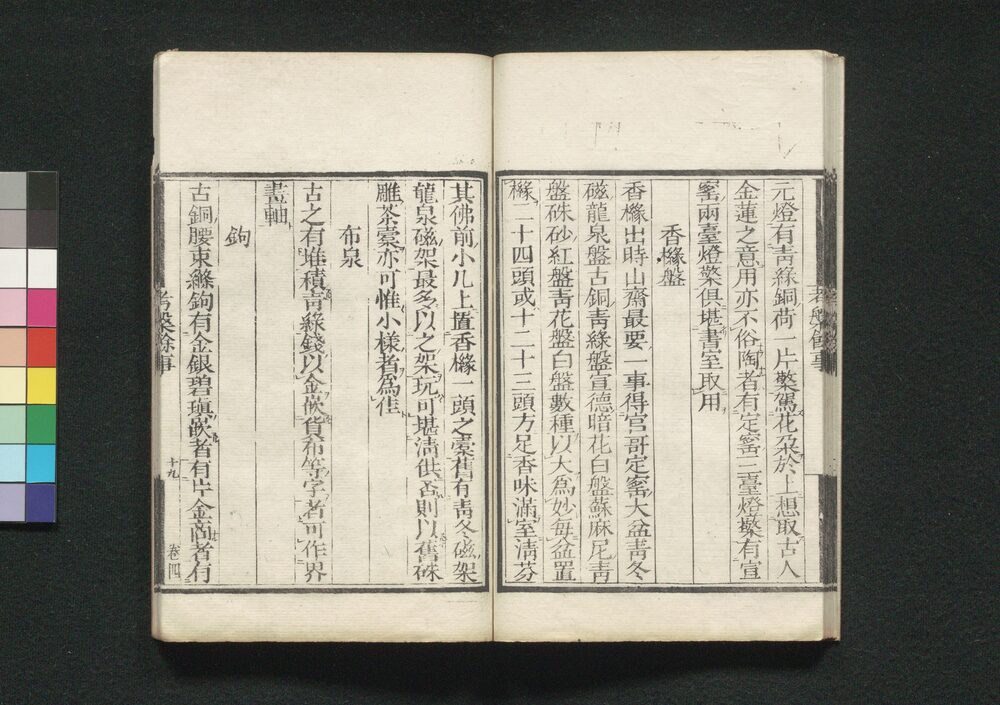 元燈有靑綠銅荷一片檠駕花朶於上想取古人
金蓮之意用亦不俗陶者有定窰三臺燈檠有宣
窰兩臺燈檠俱堪書室取用
香櫞盤
香櫞出時山齋最要一事得官哥定窰大盆靑冬
磁龍泉盤古銅靑綠盤宣德暗花白盤蘇麻尼靑
盤硃砂紅盤靑花盤白盤數種以大爲妙每盆置
櫞二十四頭或十二十三頭方足香味滿室淸芬
其佛前小几上置香櫞一頭之橐舊有靑冬磁架
龍泉磁架最多以之架玩可堪淸供否則以舊硃
雕茶橐亦可惟小樣者爲佳
布泉
古之有堆積靑綠錢以金嵌貨布等字者可作界
畫軸
鉤
古銅腰束縧鉤有金銀碧瑱嵌者有片金商者有
考槃餘事
十九
卷四